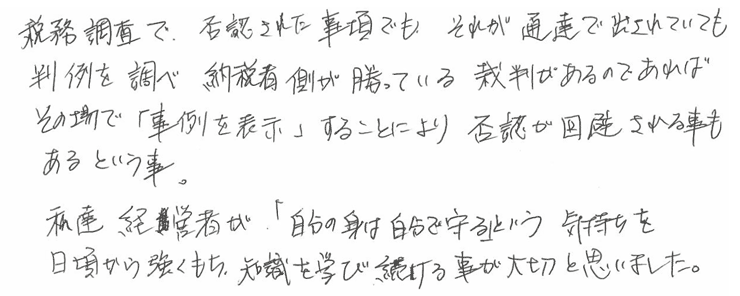 税務調査で、否認された事項でも、それが通達で出されていても
判例を調べ 納税者側が勝っている裁判があるのであれば
その場で「事例を表示」することにより 否認が回避される事も
あるという事。
私達 経営者が、「自分の身は自分で守る」という 気持ちを
日頃から強くもち、知識を学び続ける事が大切と思いました。